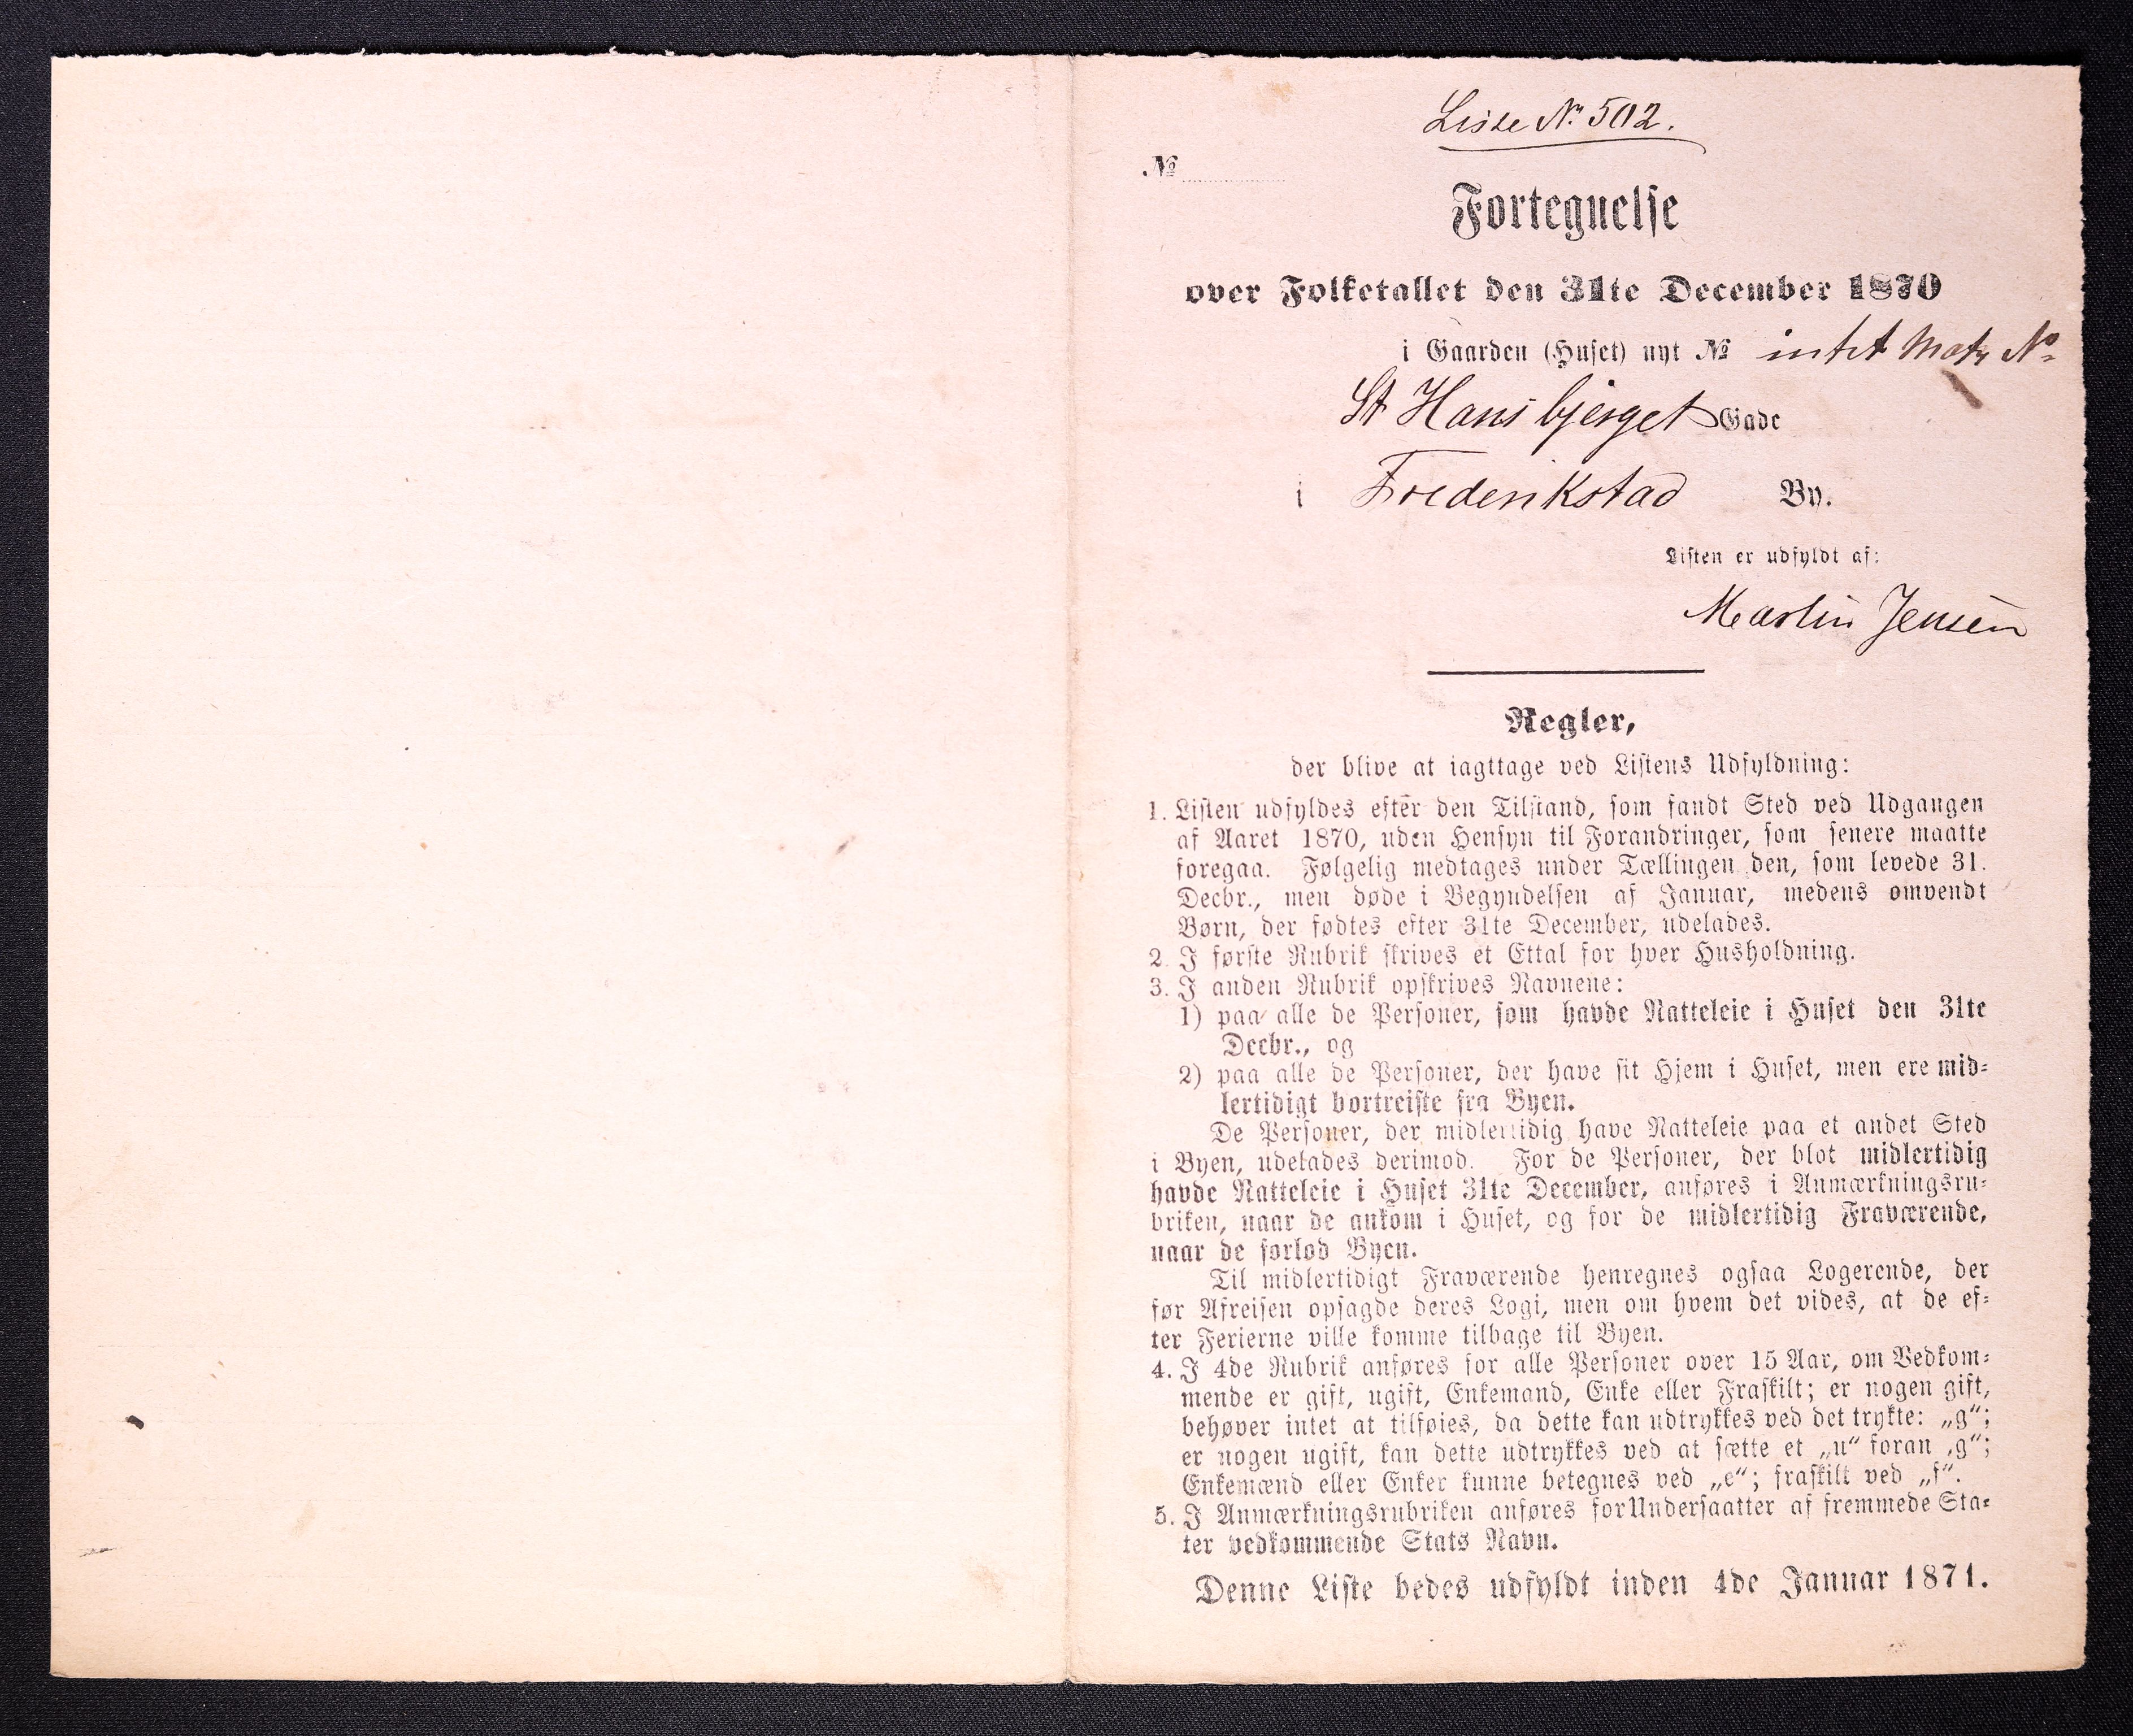 Liste № 502.
№
Fortegnelse
over Folketallet den 31te December 1870
i Gaarden (Huset) nyt № intet Matr №
St Hansbjerget Gade
i Frederikstad By.
Listen er udfyldt af:
Martin Jensen
Regler,
der blive at iagttage ved Listens Udfyldning:
1. Listen udfyldes efter den Tilstand, som fandt Sted ved Udgangen
af Aaret 1870, uden Hensyn til Forandringer, som senere maatte
foregaa. Følgelig medtages under Tællingen den, som levede 31.
Decbr., men døde i Begyndelsen af Januar, medens omvendt
Børn, der fødtes efter 31te December, udelades.
2. I første Rubrik skrives et Ettal for hver Husholdning.
3. I anden Rubrik opskrives Navnene:
1) paa alle de Personer, som havde Natteleie i Huset den 31te
Decbr., og
2) paa alle de Personer, der have sit Hjem i Huset, men ere mid-
lertidigt bortreiste fra Byen.
De Personer, der midlertidig have Natteleie paa et andet Sted
i Byen, udelades derimod. For de Personer, der blot midlertidig
havde Natteleie i Huset 31te December, anføres i Anmærkningsru-
briken, naar de ankom i Huset, og for de midlertidig Fraværende,
naar de forlod Byen.
Til midlertidigt Fraværende henregnes ogsaa Logerende, der
før Afreisen opsagde deres Logi, men om hvem det vides, at de ef-
ter Ferierne ville komme tilbage til Byen.
4. I 4de Rubrik anføres for alle Personer over 15 Aar, om Vedkom-
mende er gift, ugift, Enkemand, Enke eller Fraskilt; er nogen gift,
behøver intet at tilføies, da dette kan udtrykkes ved det trykte: „g“;
er nogen ugift, kan dette udtrykkes ved at sætte et „u“ foran „g“;
Enkemænd eller Enker kunne betegnes ved „e“; fraskilt ved „f“.
5. I Anmærkningsrubriken anføres for Undersaatter af fremmede Sta-
ter vedkommende Stats Navn.
Denne Liste bedes udfyldt inden 4de Januar 1871.